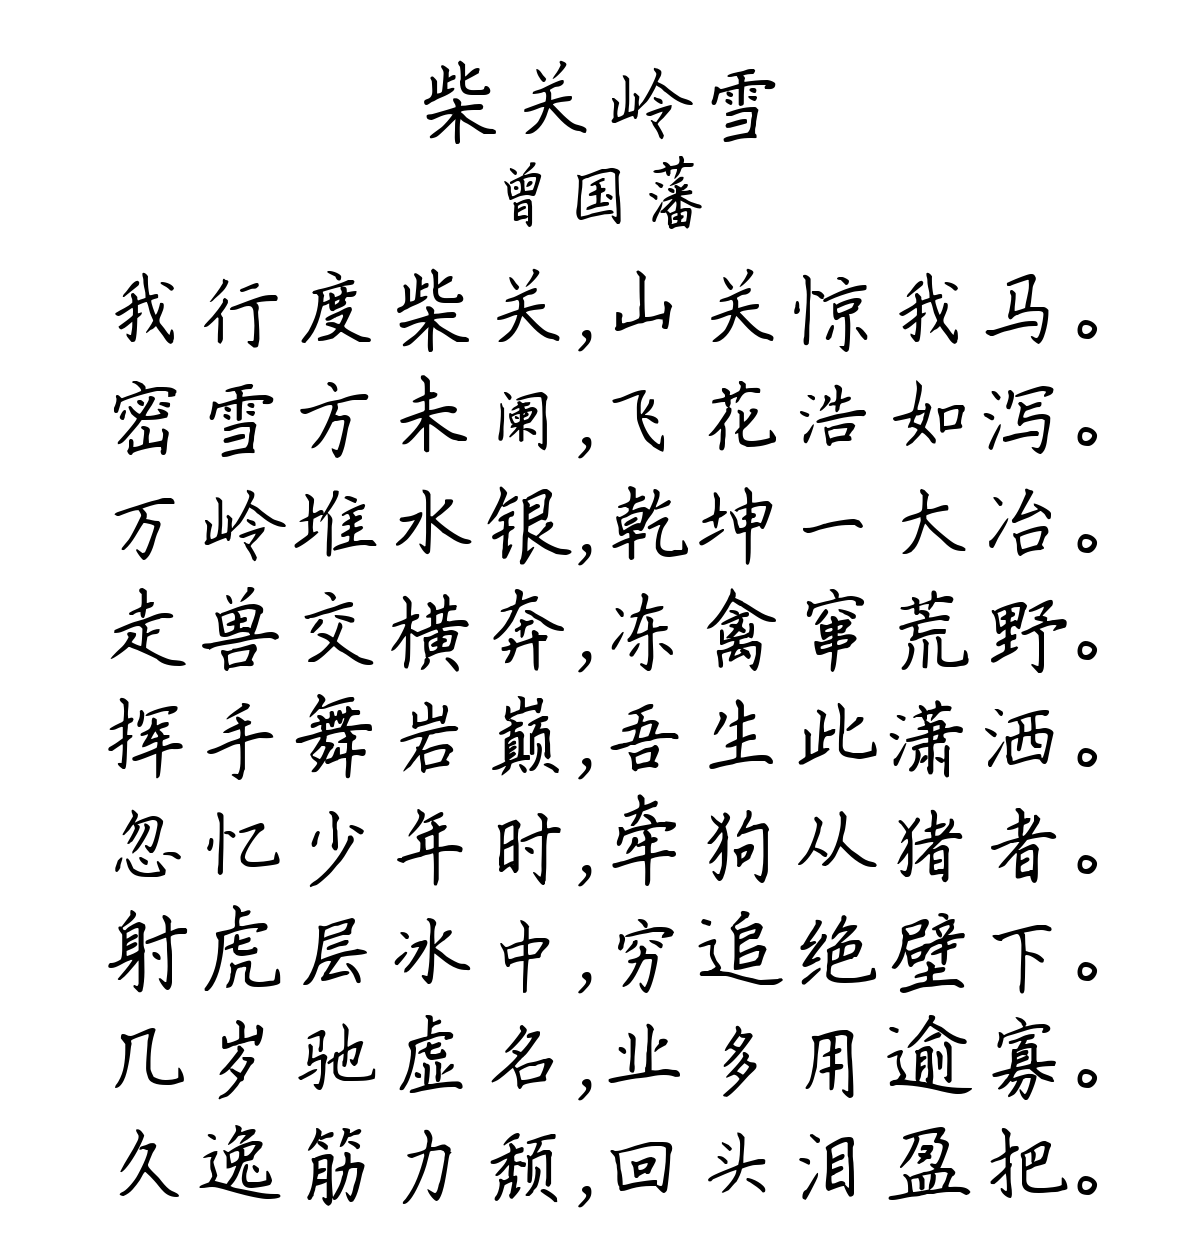 柴关岭雪
曾国藩
我行度柴关,山关惊我马。
密雪方未阑,飞花浩如泻。
万岭堆水银,乾坤一大冶。
走兽交横奔,冻禽窜荒野。
挥手舞岩巅,吾生此潇洒。
忽忆少年时,牵狗从猪者。
射虎层冰中,穷追绝壁下。
几岁驰虚名,业多用逾寡。
久逸筋力颓,回头泪盈把。